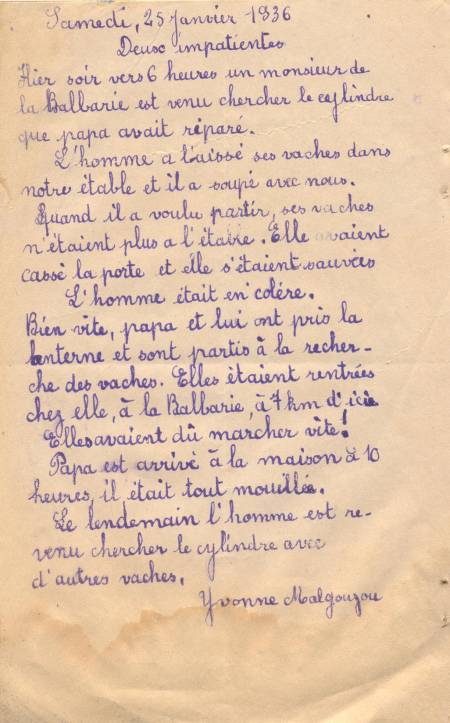 Samedi, 25 Janvier 1936
Deux impatientes
Hier soir vers 6 heures un monsieur de
la Balbarie est venu chercher le cylindre
que papa avait réparé.
L'homme a laissé ses vaches dans
notre étable et il a soupé avec nous.
Quand il a voulu partir, ses vaches
n'étaient plus a l'étable. Elle avaient
cassé la porte et elle s'étaient sauvées
L'homme était en colére.
Bien vite, papa et lui ont pris la
lanterne et sont partis à la recher-
che des vaches. Elles étaient rentrées
chez elle, à la Balbarie, à 7 km d'ici
Elles avaient dû marcher vite!
Papa est arrivé à la maison à 10
heures, il était tout mouillé.
Le lendemain l'homme est re-
venu chercher le cylindre avec
d'autres vaches.
Yvonne Malgouzou